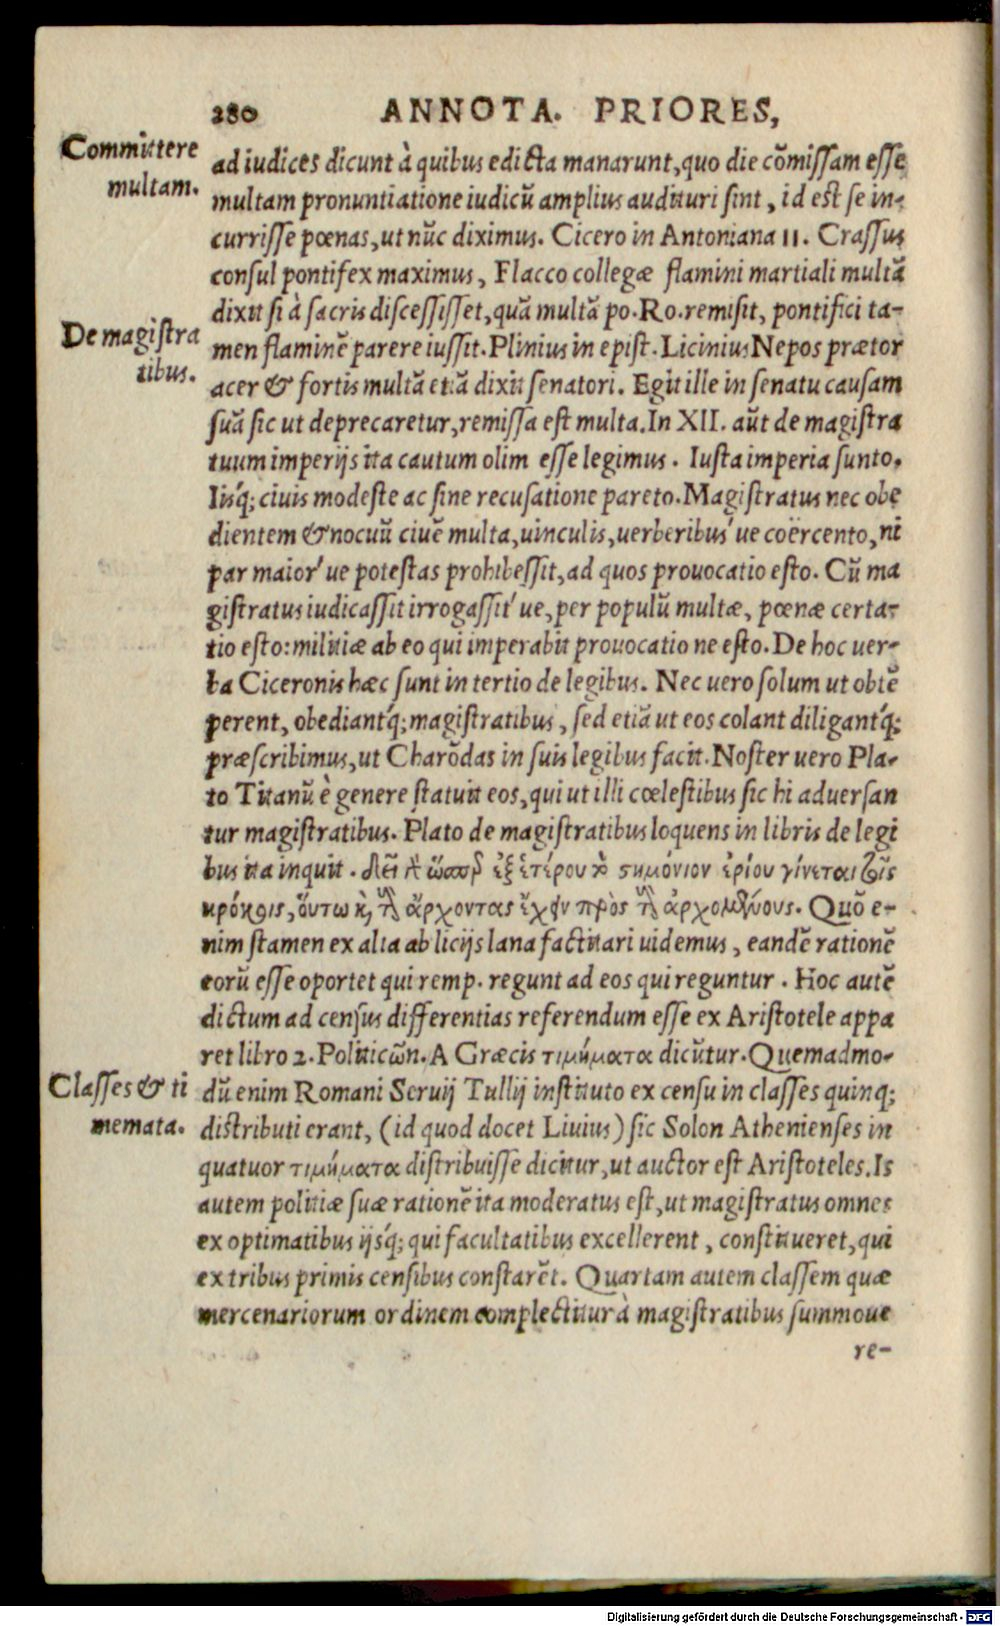 280 ANNOTA. PRIORES,
Committere
multam.
ad iudices dicunt à quibus edicta manarunt, quo die cõmissam esse
multam pronuntiatione iudicũ amplius audituri sint, id est se in-
currisse pœnas, ut nũc diximus. Cicero in Antoniana II. Crassus
consul pontifex maximus, Flacco collegæ flamini martiali multã
dixit si à sacris discessisset, quã multã po. Ro. remisit, pontifici ta-
De magistra
tibus.
men flaminẽ parere iussit. Plinius in epist. Licinius Nepos prætor
acer & fortis multã etiã dixit senatori. Egit ille in senatu causam
suã sic ut deprecaretur, remissa est multa. In XII. aũt de magistra
tuum imperijs ita cautum olim esse legimus. Iusta imperia sunto.
Iisq́; ciuis modeste ac sine recusatione pareto. Magistratus nec obe
dientem & nocuũ ciuẽ multa, uinculis, uerberibus´ue coërcento, ni
par maior´ue potestas prohibessit, ad quos prouocatio esto. Cũ ma
gistratus iudicassit irrogassit´ue, per populũ multæ, pœnæ certa-
tio esto: militiæ ab eo qui imperabit prouocatio ne esto. De hoc uer-
ba Ciceronis hæc sunt in tertio de legibus. Nec uero solum ut obtẽ
perent, obediantq́; magistratibus, sed etiã ut eos colant diligantq́;
præscribimus, ut Charõdas in suis legibus facit. Noster uero Pla-
to Titanũ è genere statuit eos, qui ut illi cœlestibus sic hi aduersan
tur magistratibus. Plato de magistratibus loquens in libris de legi
bus ita inquit. δεῖ ὥσπερ ἐξ ἑτέρου τὸ στημόνιον ἐρίου γίνεται τῆς
κρόκης, ὅυτω καὶ τοὺς ἄρχοντας ἔχειν πρὸς τοὺς ἀρχομένους. Quõ e-
nim stamen ex alia ab licijs lana factitari uidemus, eandẽ rationẽ
eorũ esse oportet qui remp. regunt ad eos qui reguntur. Hoc autẽ
dictum ad census differentias referendum esse ex Aristotele appa
ret libro 2. Politicῶn. A Græcis τιμήματα dicũtur. Quemadmo-
Classes & ti
memata.
dũ enim Romani Seruij Tullij instituto ex censu in classes quinq;
distributi erant, (id quod docet Liuius) sic Solon Athenienses in
quatuor τιμήματα distribuisse dicitur, ut auctor est Aristoteles. Is
autem politiæ suæ rationẽ ita moderatus est, ut magistratus omnes
ex optimatibus ijsq́; qui facultatibus excellerent, constitueret, qui
ex tribus primis censibus constarẽt. Quartam autem classem quæ
mercenariorum ordinem complectitur à magistratibus summoue
re-
Digitalisierung gefördert durch die Deutsche Forschungsgemeinschaft - DFG